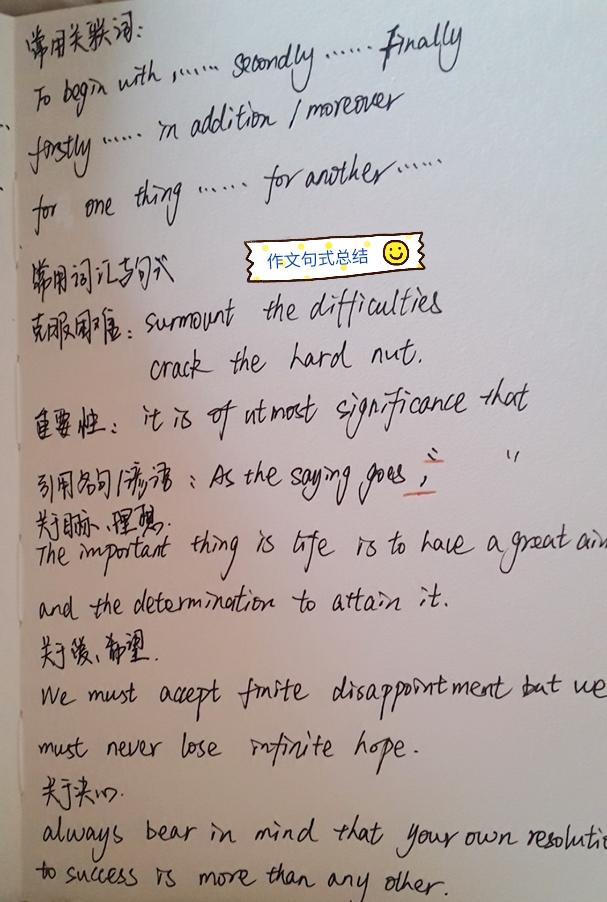 常用关联词:
To begin with ,...... secondly ...... Finally
firstly ...... in addition / moreover
for one thing ...... for another ......
作文句式总结
常用词汇与句式
克服困难: surmount the difficulties
crack the hard nut.
重要性: it is of utmost significance that
引用名句/谚语: As the saying goes, " "
关于目标、理想.
The important thing is life is to have a great aim
and the determination to attain it.
关于爱、希望.
We must accept finite disappointment but we
must never lose infinite hope.
关于决心.
always bear in mind that your own resoluti
to success is more than any other.